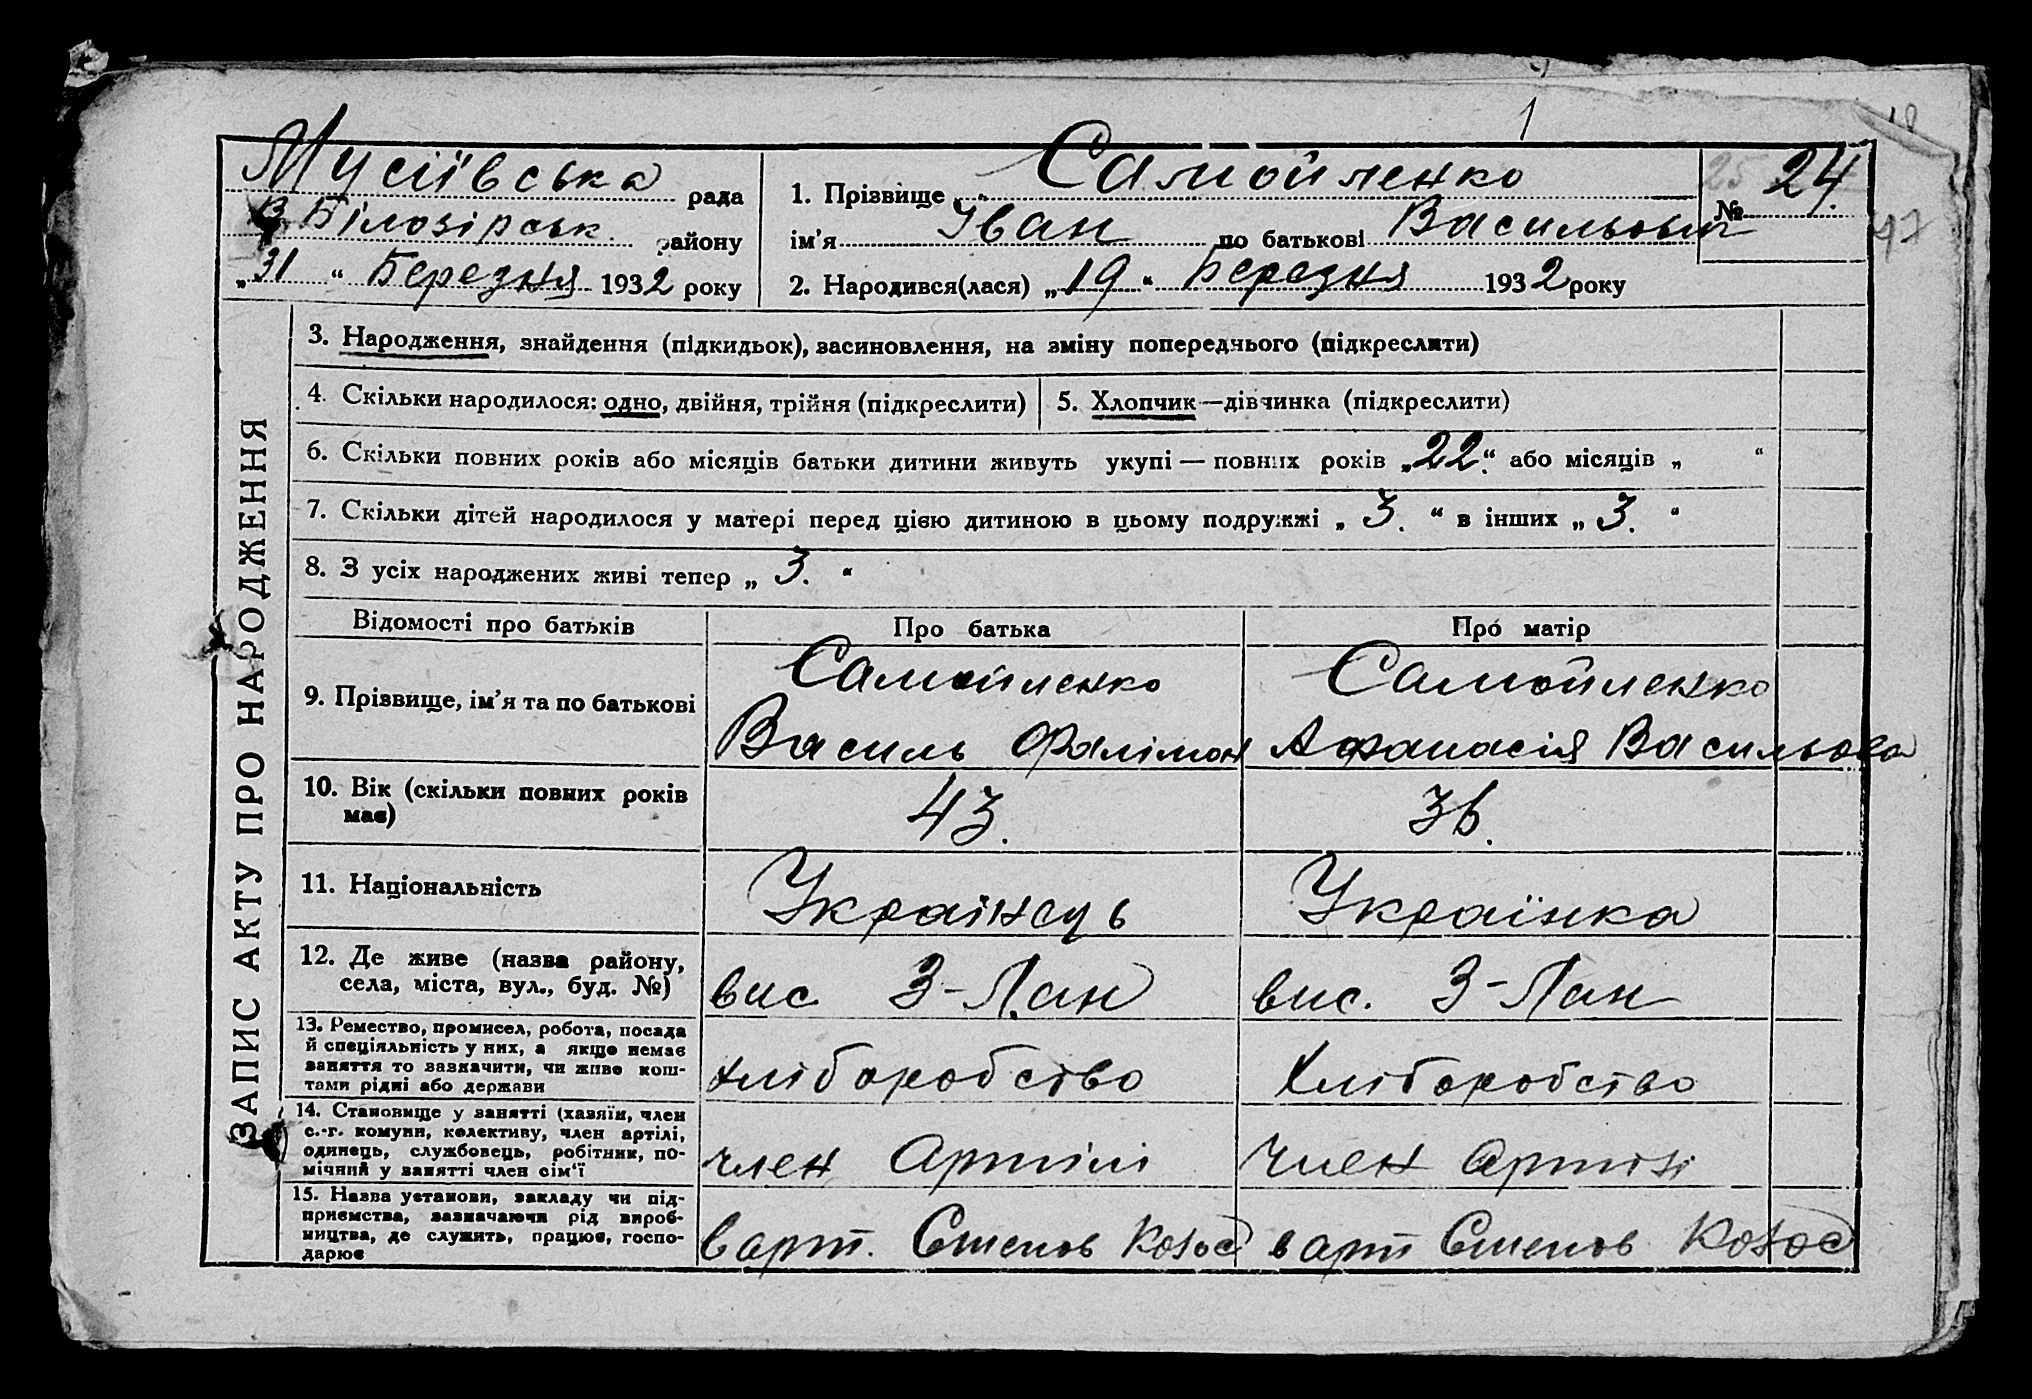 1
Мусіївська рада
В Білозірськ. району
„31“ Березня 1932 року
1. Прізвище Самойленко
ім’я Іван по батькові Васильович
2. Народився(лася) „19“ Березня 1932 року
25 24.
№
47
ЗАПИС АКТУ ПРО НАРОДЖЕННЯ
3. Народження, знайдення (підкидьок), засиновлення, на зміну попереднього (підкреслити)
4. Скільки народилося: одно, двійня, трійня (підкреслити)
5. Хлопчик—дівчинка (підкреслити)
6. Скільки повних років або місяців батьки дитини живуть укупі — повних років „22.“ або місяців „ “
7. Скільки дітей народилося у матері перед цією дитиною в цьому подружжі „ 3. “ в інших „ 3. “
8. З усіх народжених живі тепер „ 3. “
Відомості про батьків Про батька Про матір
9. Прізвище, ім’я та по батькові
Самойленко
Василь Фалімон
Самойленко
Афанасія Васильова
10. Вік (скільки повних років
має)
43.
36.
11. Національність
Українець
Українка
12. Де живе (назва району,
села, міста, вул., буд. №)
вис З-Лан
вис. З-Лан
13. Ремество, промисел, робота, посада
й спеціяльність у них, а якще немає
заняття то зазначити, чи живе кош-
тами рідні або держави
хліборобство
Хліборобство
14. Становище у занятті (хазяїн, член
с.-г. комуни, колективу, член артілі,
одинець, службовець, робітник, по-
мічний у занятті член сім’ї
член Артілі
Член артілі
15. Назва установи, закладу чи під-
приємства, зазначаючи рід вироб-
ництва, де служить, працює, госпо-
дарює
в арт. Степов Колос
в арт Степов Колос